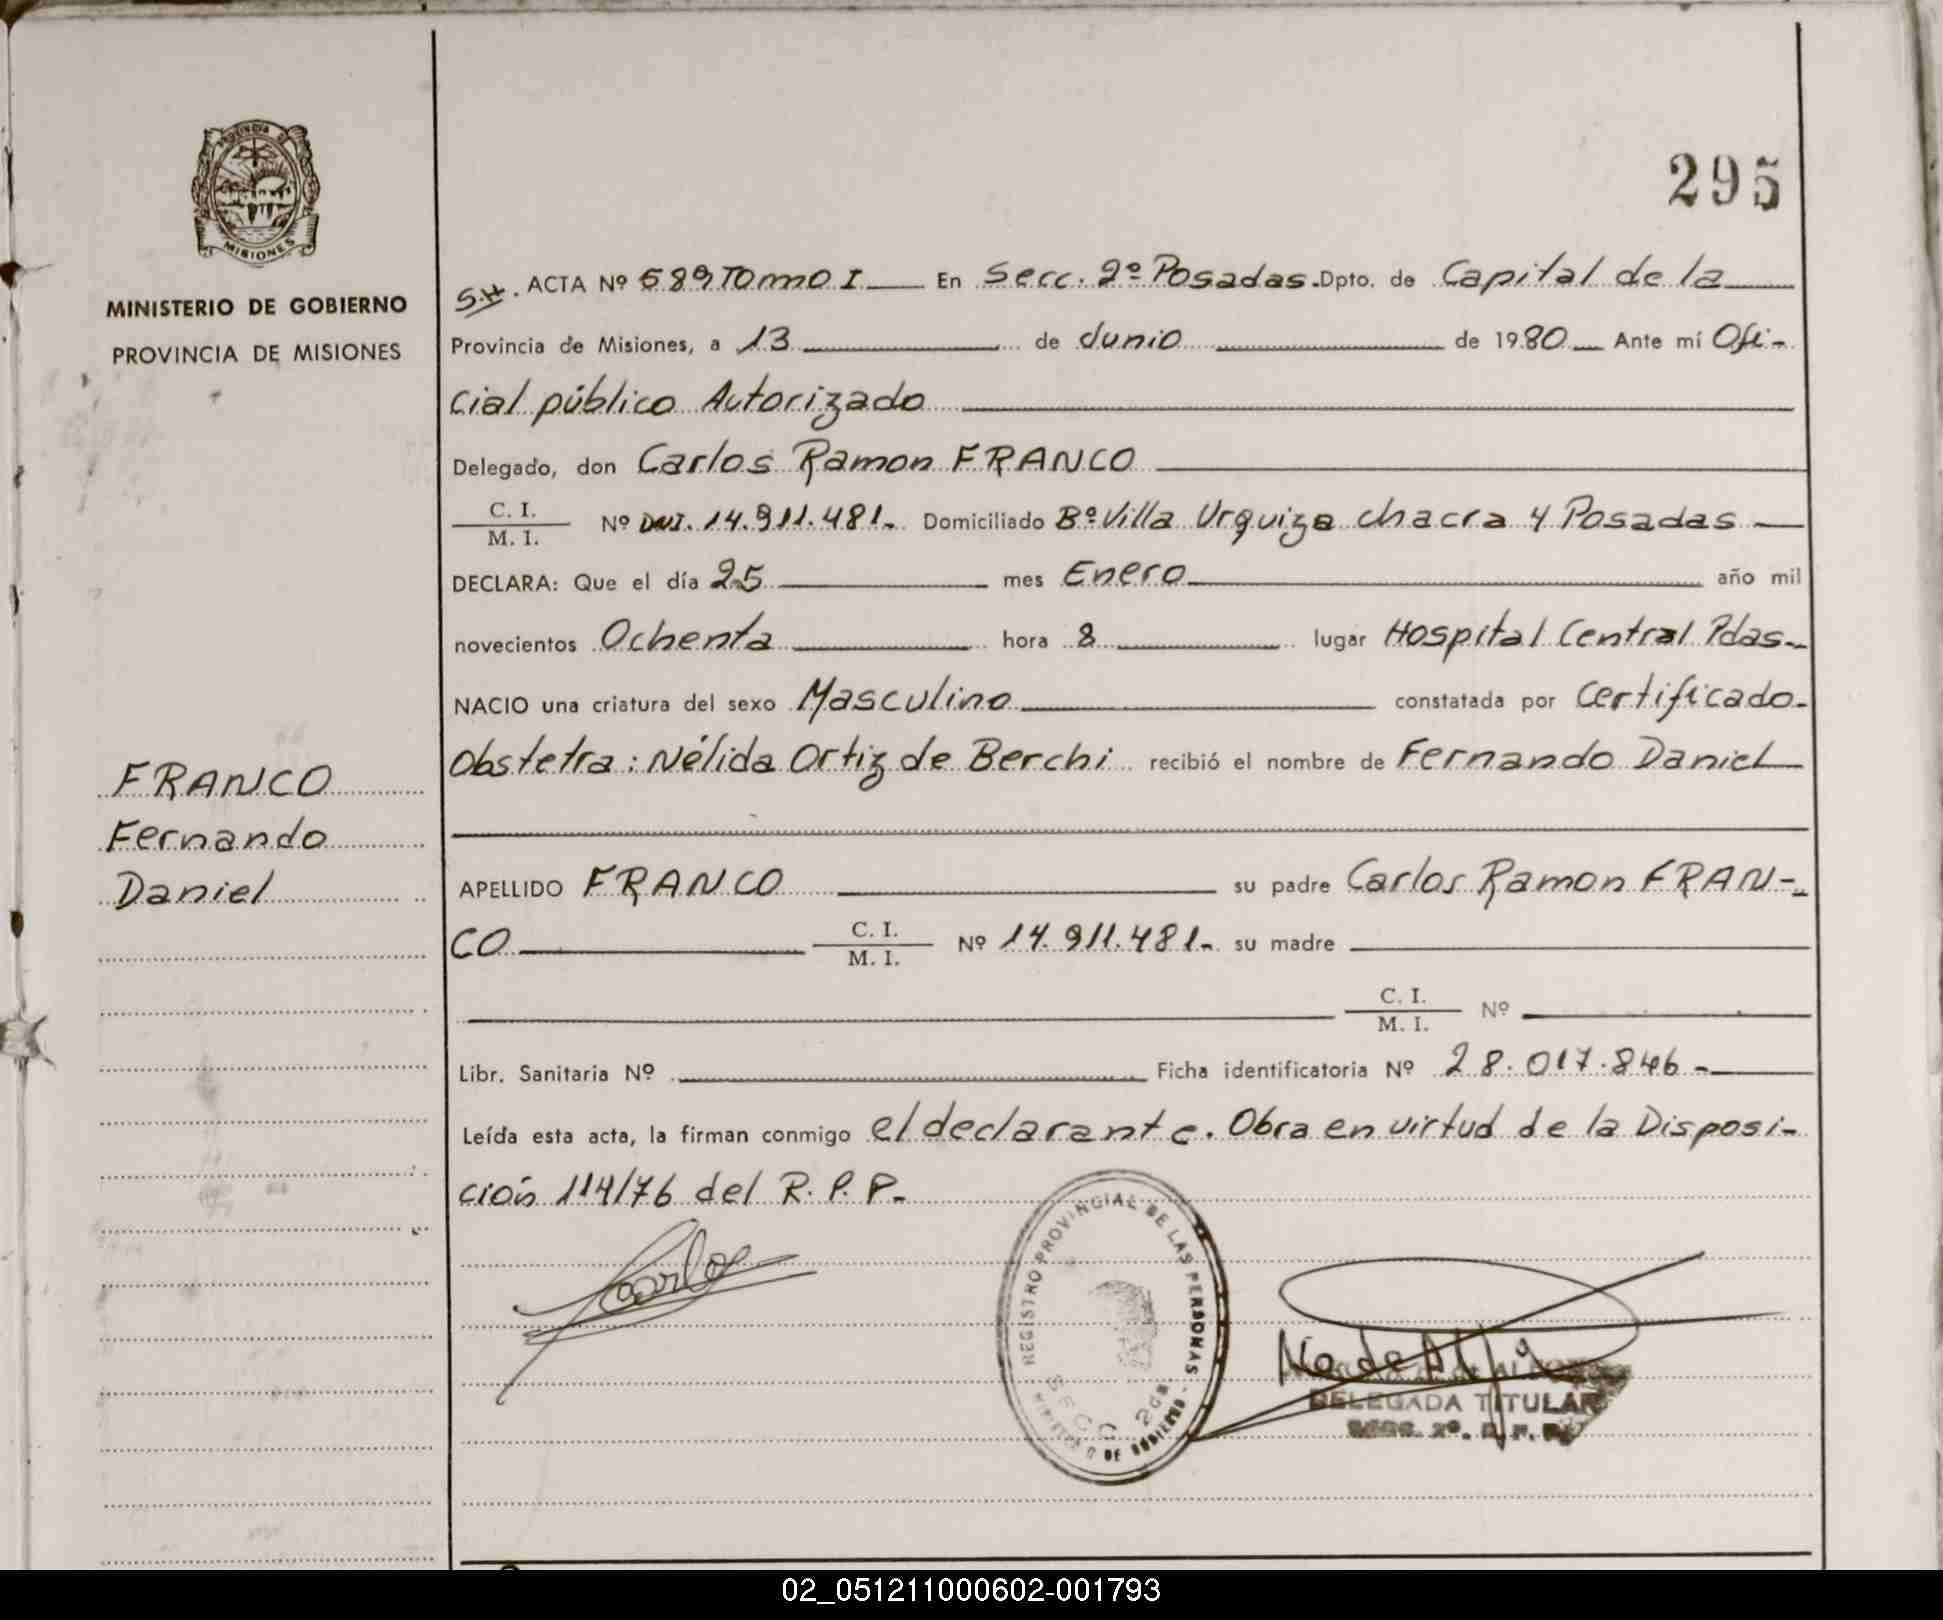 PROVINCIA DE
MISIONES
MINISTERIO DE GOBIERNO
PROVINCIA DE MISIONES
FRANCO
Fernando
Daniel
295
S.H. ACTA Nº 589 Tomo I En Secc. 2º Posadas. Dpto. de Capital de la
Provincia de Misiones, a 13 de Junio de 1980 Ante mí Ofi-
cial público Autorizado
Delegado, don Carlos Ramon FRANCO
C. I.
M. I. Nº DNI. 14.911.481.- Domiciliado Bº Villa Urquiza chacra 4 Posadas
DECLARA: Que el día 25 mes Enero año mil
novecientos Ochenta hora 8 lugar Hospital Central Pdas.-
NACIO una criatura del sexo Masculino constatada por Certificado-
Obstetra: Nélida Ortiz de Berchi recibió el nombre de Fernando Daniel
APELLIDO FRANCO su padre Carlos Ramon FRAN-
CO C. I.
M. I. Nº 14.911.481.- su madre
C. I.
M. I. Nº
Libr. Sanitaria Nº Ficha identificatoria Nº 28.017.846-
Leída esta acta, la firman conmigo el declarante. Obra en virtud de la Disposi-
ción 114/76 del R. P. P.-
Carlos
REGISTRO PROVINCIAL DE LAS PERSONAS - MINISTERIO DE GOBIERNO
SECC 2da
DELEGADA TITULAR
SECC. 2º. R. P. P.
02_051211000602-001793